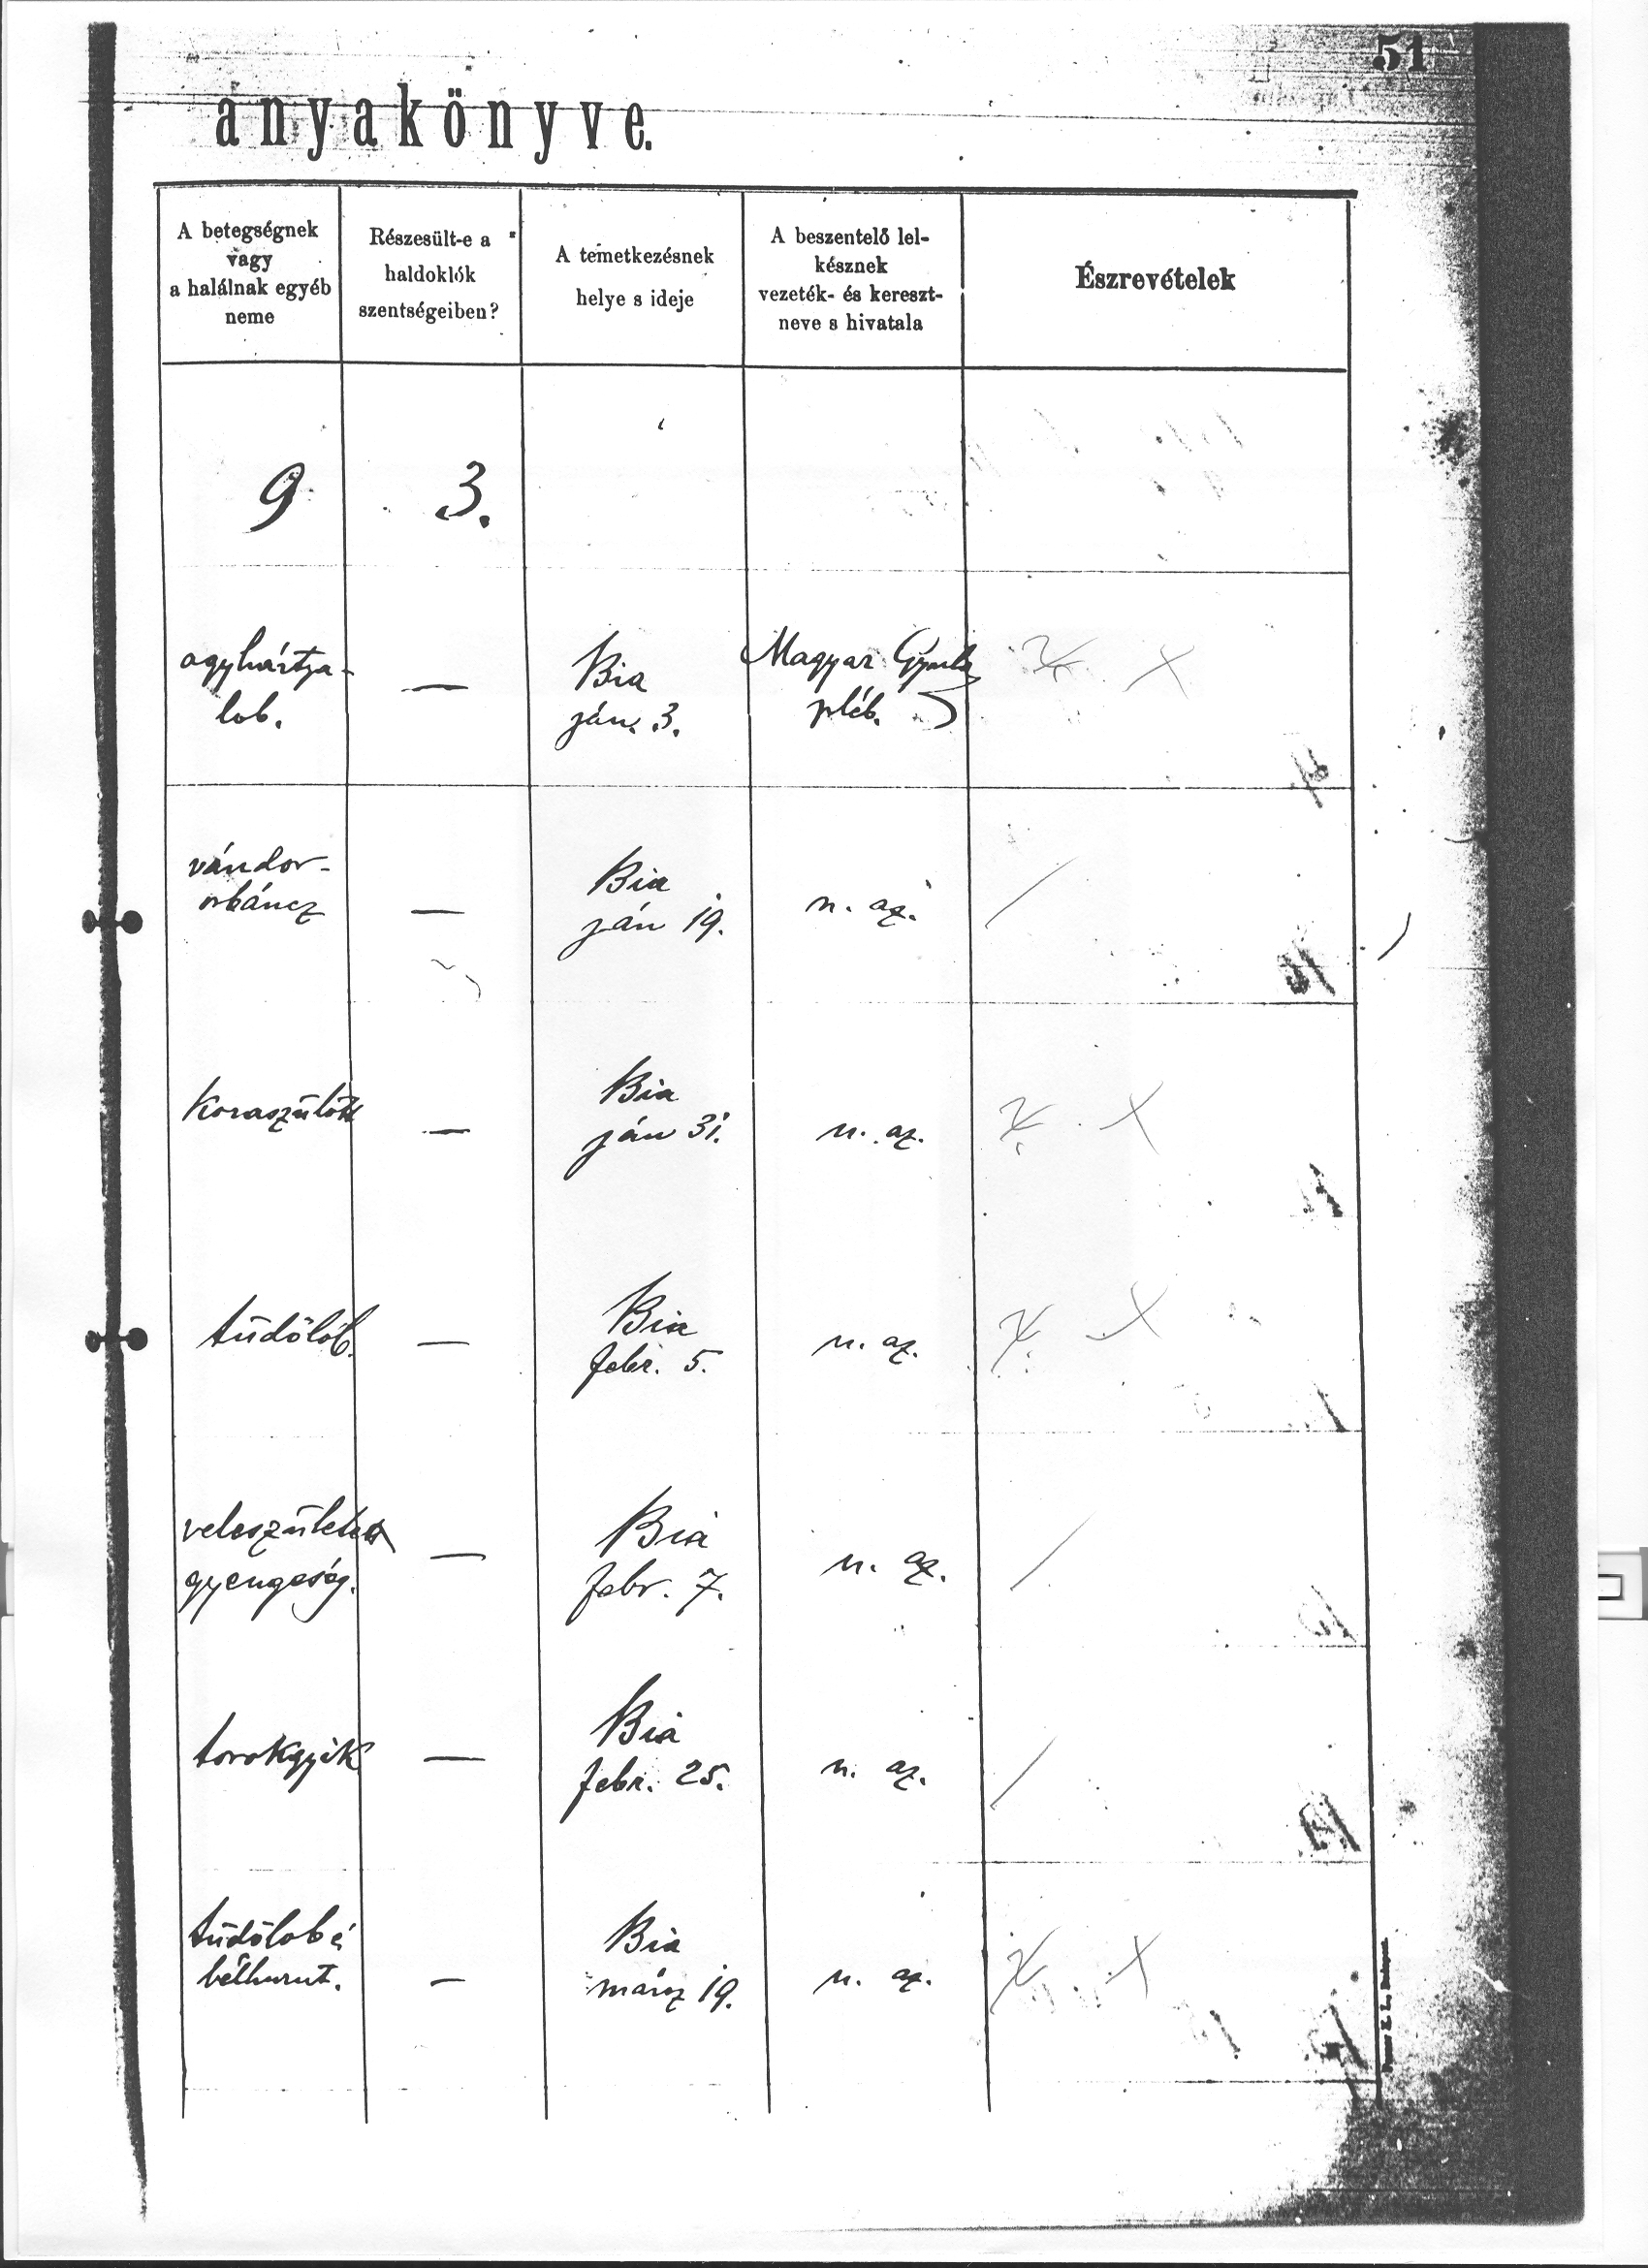 51
anyakönyve.
A betegségnek
vagy
a halálnak egyéb
neme
Részesült-e a
haldoklók
szentségeiben?
A temetkezésnek
helye s ideje
A beszentelő lel-
késznek
vezeték- és kereszt-
neve s hivatala
Észrevételek
9 3.
agyhártya-
lob.
—
Bia
ján. 3.
Magyar Gyula
pléb.
vándor-
orbáncz
—
Bia
ján 19.
u. az.
Koraszülött
—
Bia
ján 31.
u. az.
tüdőlob.
—
Bia
febr. 5.
u. az.
veleszületett
gyengeség.
—
Bia
febr. 7.
u. az.
torokgyík
—
Bia
febr. 25.
u. az.
tüdőlob é
bélhurut.
—
Bia
márcz 19.
u. az.
Budapest.